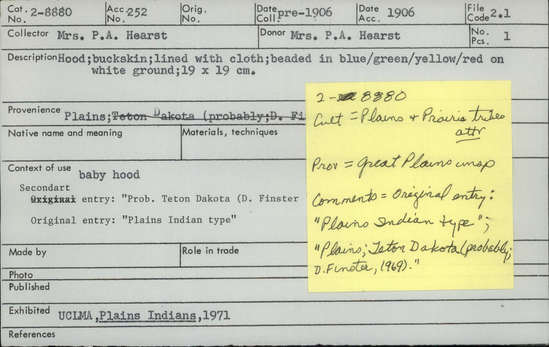 Cat. No. 2-8880 Acc. No. 252 Orig. No. Date Coll. pre-1906 Date Acc. 1906 File Code 2.1
Collector Mrs. P.A. Hearst Donor Mrs. P.A. Hearst No. Pcs. 1
Description Hood;buckskin;lined with cloth;beaded in blue/green/yellow/red on
white ground;19 x 19 cm.
Provenience Plains;Teton Dakota (probably;D. Fi
Native name and meaning Materials, techniques
Context of use baby hood
Secondart
Original entry: "Prob. Teton Dakota (D. Finster
Original entry: "Plains Indian type"
Made by Role in trade
Photo
Published
Exhibited UCLMA,Plains Indians,1971
References
2-8880
Cult = Plains & Prairie tribes
attr
Prov = Great Plains unsp
Comments = Original entry:
"Plains Indian type";
"Plains; Teton Dakota (probably;
D. Finster, 1969)."